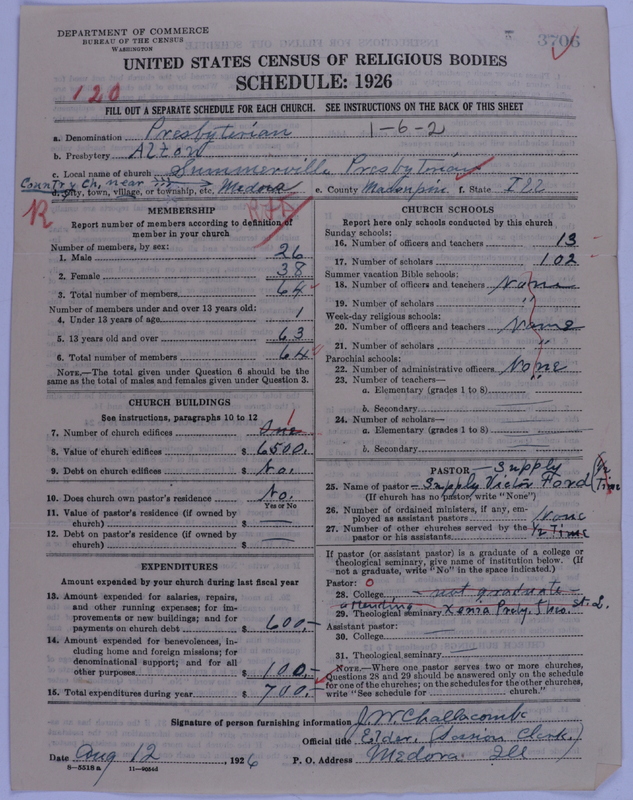 DEPARTMENT OF COMMERCE
BUREAU OF THE CENSUS
WASHINGTON
3706
UNITED STATES CENSUS OF RELIGIOUS BODIES
SCHEDULE: 1926
120
FILL OUT A SEPARATE SCHEDULE FOR EACH CHURCH. SEE INSTRUCTIONS ON THE BACK OF THIS SHEET
a. Denomination Presbyterian 1-6-2
b. Presbytery Alton
c. Local name of church Summerville Presbyterian
Country Ch, near
d. City, town, village, or township, etc. Medora e. County Macoupin f. State Ill
R RFD
MEMBERSHIP
Report number of members according to definition of
member in your church
Number of members, by sex:
1. Male 26
2. Female 38
3. Total number of members 64
Number of members under and over 13 years old:
4. Under 13 years of age 1
5. 13 years old and over 63
6. Total number of members 64
NOTE.—The total given under Question 6 should be
the same as the total of males and females given under Question 3.
CHURCH BUILDINGS
See instructions, paragraphs 10 to 12
1
7. Number of church edifices One
8. Value of church edifices $ 6500.
9. Debt on church edifices $ No.
10. Does church own pastor's residence No.
Yes or No
11. Value of pastor's residence (if owned by
church) $
12. Debt on pastor's residence (if owned by
church) $
EXPENDITURES
Amount expended by your church during last fiscal year
13. Amount expended for salaries, repairs,
and other running expenses; for im-
provements or new buildings; and for
payments on church debt $ 600.-
14. Amount expended for benevolences, in-
cluding home and foreign missions; for
denominational support; and for all
other purposes $ 100.-
15. Total expenditures during year $ 700.-
CHURCH SCHOOLS
Report here only schools conducted by this church
Sunday schools:
16. Number of officers and teachers 13
17. Number of scholars 102
Summer vacation Bible schools:
18. Number of officers and teachers None
19. Number of scholars "
Week-day religious schools:
20. Number of officers and teachers None
21. Number of scholars "
Parochial schools:
22. Number of administrative officers None
23. Number of teachers— "
a. Elementary (grades 1 to 8)
b. Secondary
24. Number of scholars—
a. Elementary (grades 1 to 8)
b. Secondary
PASTOR - Supply
25. Name of pastor - Supply Victor Ford (1/2 Time
(If church has no pastor, write "None")
26. Number of ordained ministers, if any, em-
ployed as assistant pastors None
27. Number of other churches served by the
pastor or his assistants 1/2 Time
If pastor (or assistant pastor) is a graduate of a college or
theological seminary, give name of institution below. (If
not a graduate, write "No" in the space indicated.)
Pastor: 0
28. College - not graduate
attending
29. Theological seminary Xenia Presby. Theo. St. L.
Assistant pastor:
30. College
31. Theological seminary
NOTE.—Where one pastor serves two or more churches,
Questions 28 and 29 should be answered only on the schedule
for one of the churches; on the schedules for the other churches,
write "See schedule for church."
Signature of person furnishing information J. W. Challacombe
Official title Elder, (Session Clerk.)
Date Aug 12, 1926 P. O. Address Medora Ill
8—5518 a 11—9054d